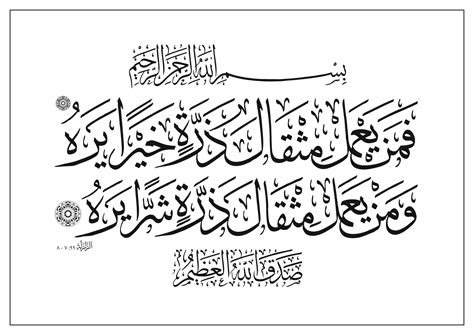 بِسْمِ اللَّهِ الرَّحْمَنِ الرَّحِيمِ
فَمَنْ يَعْمَلْ مِثْقَالَ ذَرَّةٍ خَيْرًا يَرَهُ
وَمَنْ يَعْمَلْ مِثْقَالَ ذَرَّةٍ شَرًّا يَرَهُ
الزلزلة ٩٩/ ٧-٨
صَدَقَ اللَّهُ الْعَظِيمُ